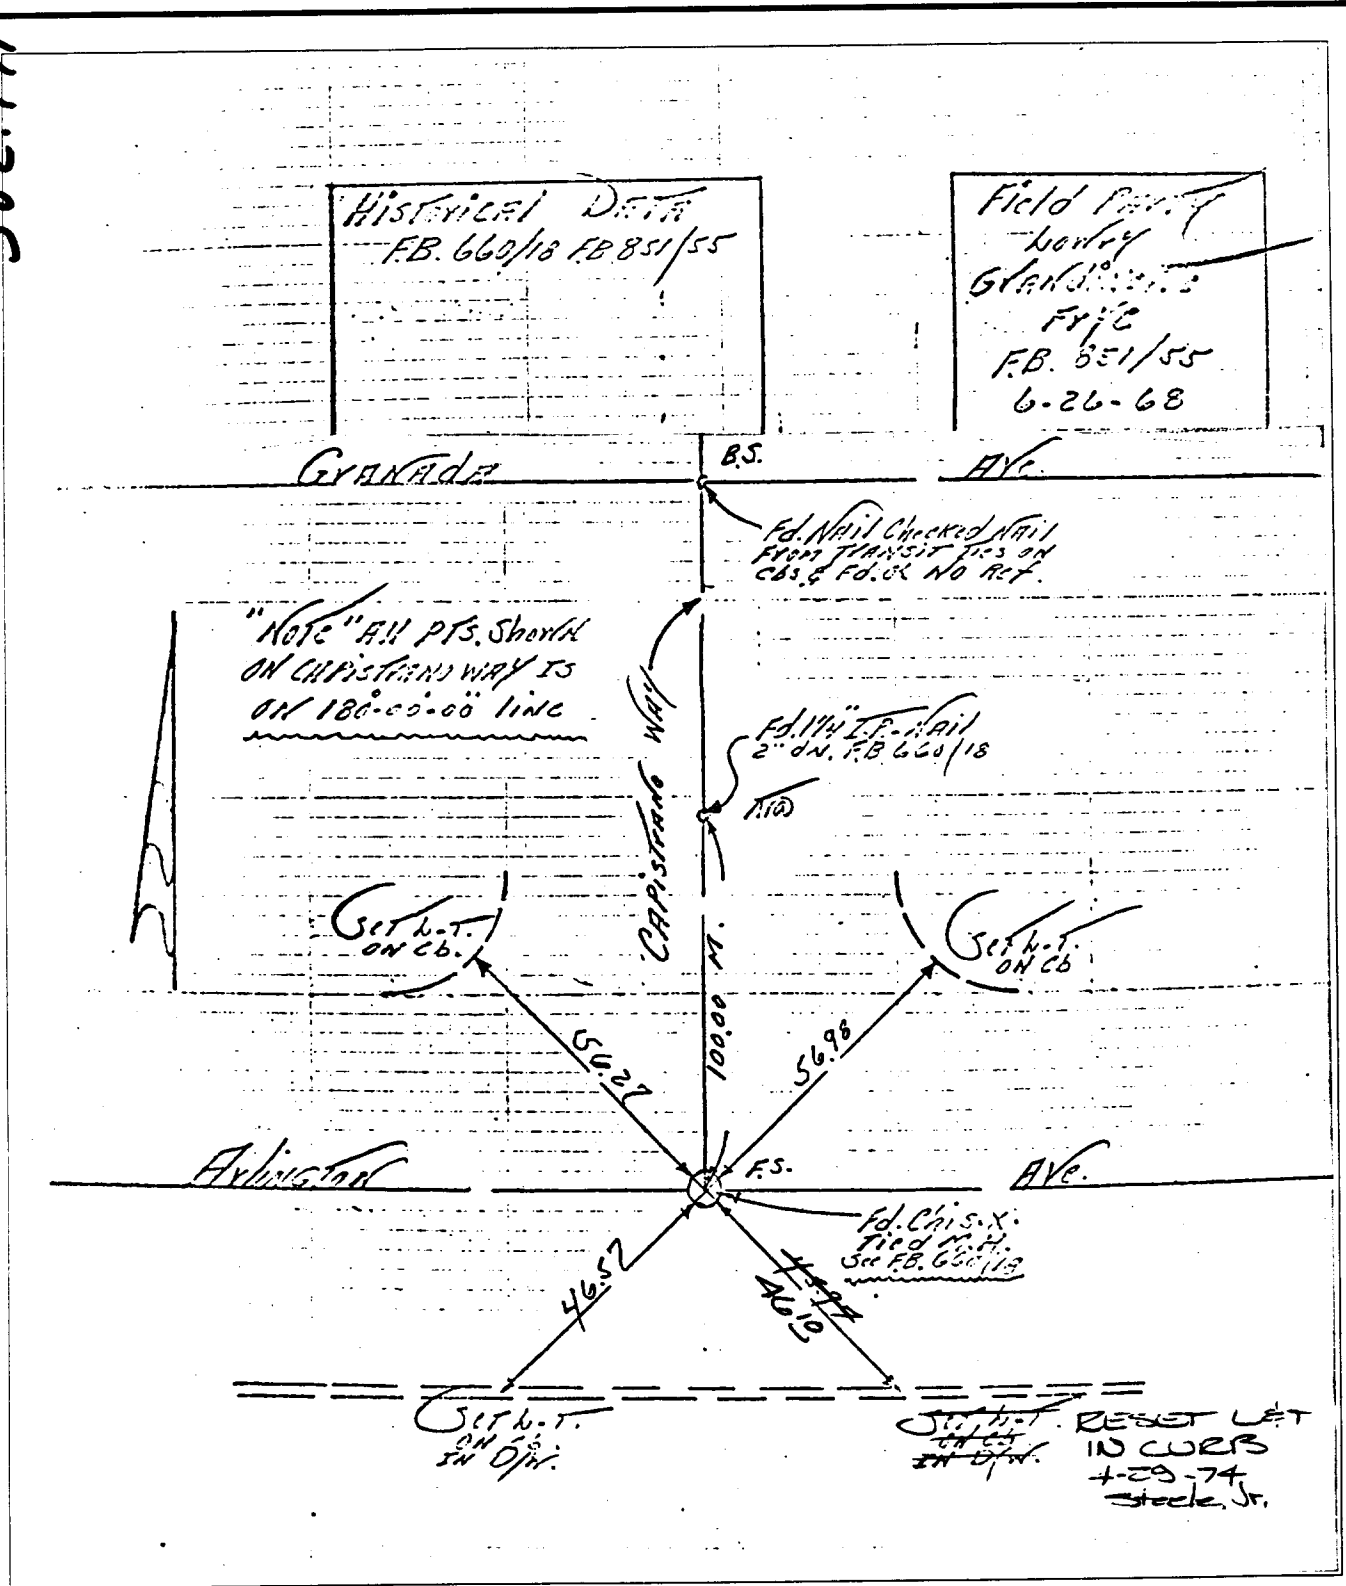 Historical Data
F.B. 660/18 F.B 851/55
Field Party
Lowry
F.B. 851/55
6-26-68
B.S.
Granada Ave.
Fd. Nail Checked Nail
From Transit Ties on
Cbs. & Fd. OK No Ref.
"Note" All PTS. Shown
ON CAPISTRANO WAY IS
ON 180-00-00 line
CAPISTRANO WAY
Fd. 1¼" I.P. - Nail
2" dn. F.B 660/18
Set L.T.
ON Cb.
Set L.T.
ON Cb
100.00 M.
56.27
56.98
Arlington Ave.
F.S.
Fd. Chis. X.
Tied M.H.
See F.B. 660/18
46.57
46.10
Set L.T.
ON Cb
IN D/W.
Set L.T.
ON Cb
IN D/W.
RESET L&T
IN CURB
4-29-74
Steele, Jr.